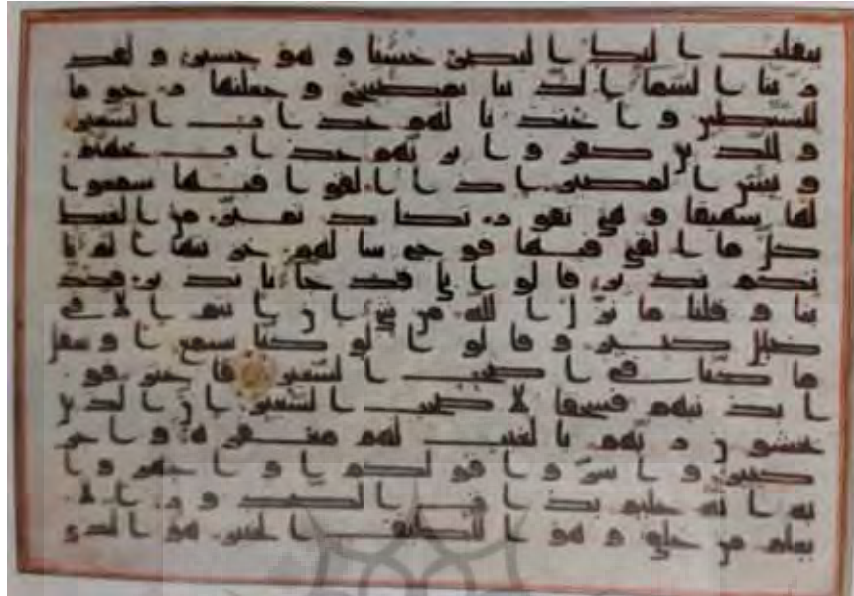 ينقلب اليك البصر خسئا و هو حسير و لقد
ز ينا السما الد نيا بمصبيح و جعلنها ر جو ما
للشيطين و ا عتد نا لهم عذ ا ب السعير
و للذ ين كفر و ا بر بهم عذ ا ب جهنم
و بئس ا لمصير ا ذ ا ا لقو ا فيها سمعو ا
لها شهيقا و هي تفو ر تكا د تميز من ا لغيظ
كلما ا لقي فيها فو ج سا لهم خز نتها ا لم يا
تكم نذ ير قا لو ا بلى قد جا نا نذ ير فكذ
بنا و قلنا ما نز ل ا لله من شي ا ن ا نتم ا لا في
ضلل كبير و قا لو ا لو كنا نسمع ا و نعقل
ما كنا في ا صحب ا لسعير فا عتر فو
ا بذ نبهم فسحقا لا صحب ا لسعير ا ن ا لذ ين
يخشو ن ر بهم با لغيب لهم مغفر ة و ا جر
كبير و ا سر و ا قو لكم ا و ا جهر و ا
به ا نه عليم بذ ا ت ا لصد و ر ا لا
يعلم من خلق و هو ا للطيف ا لخبير هو ا لذي